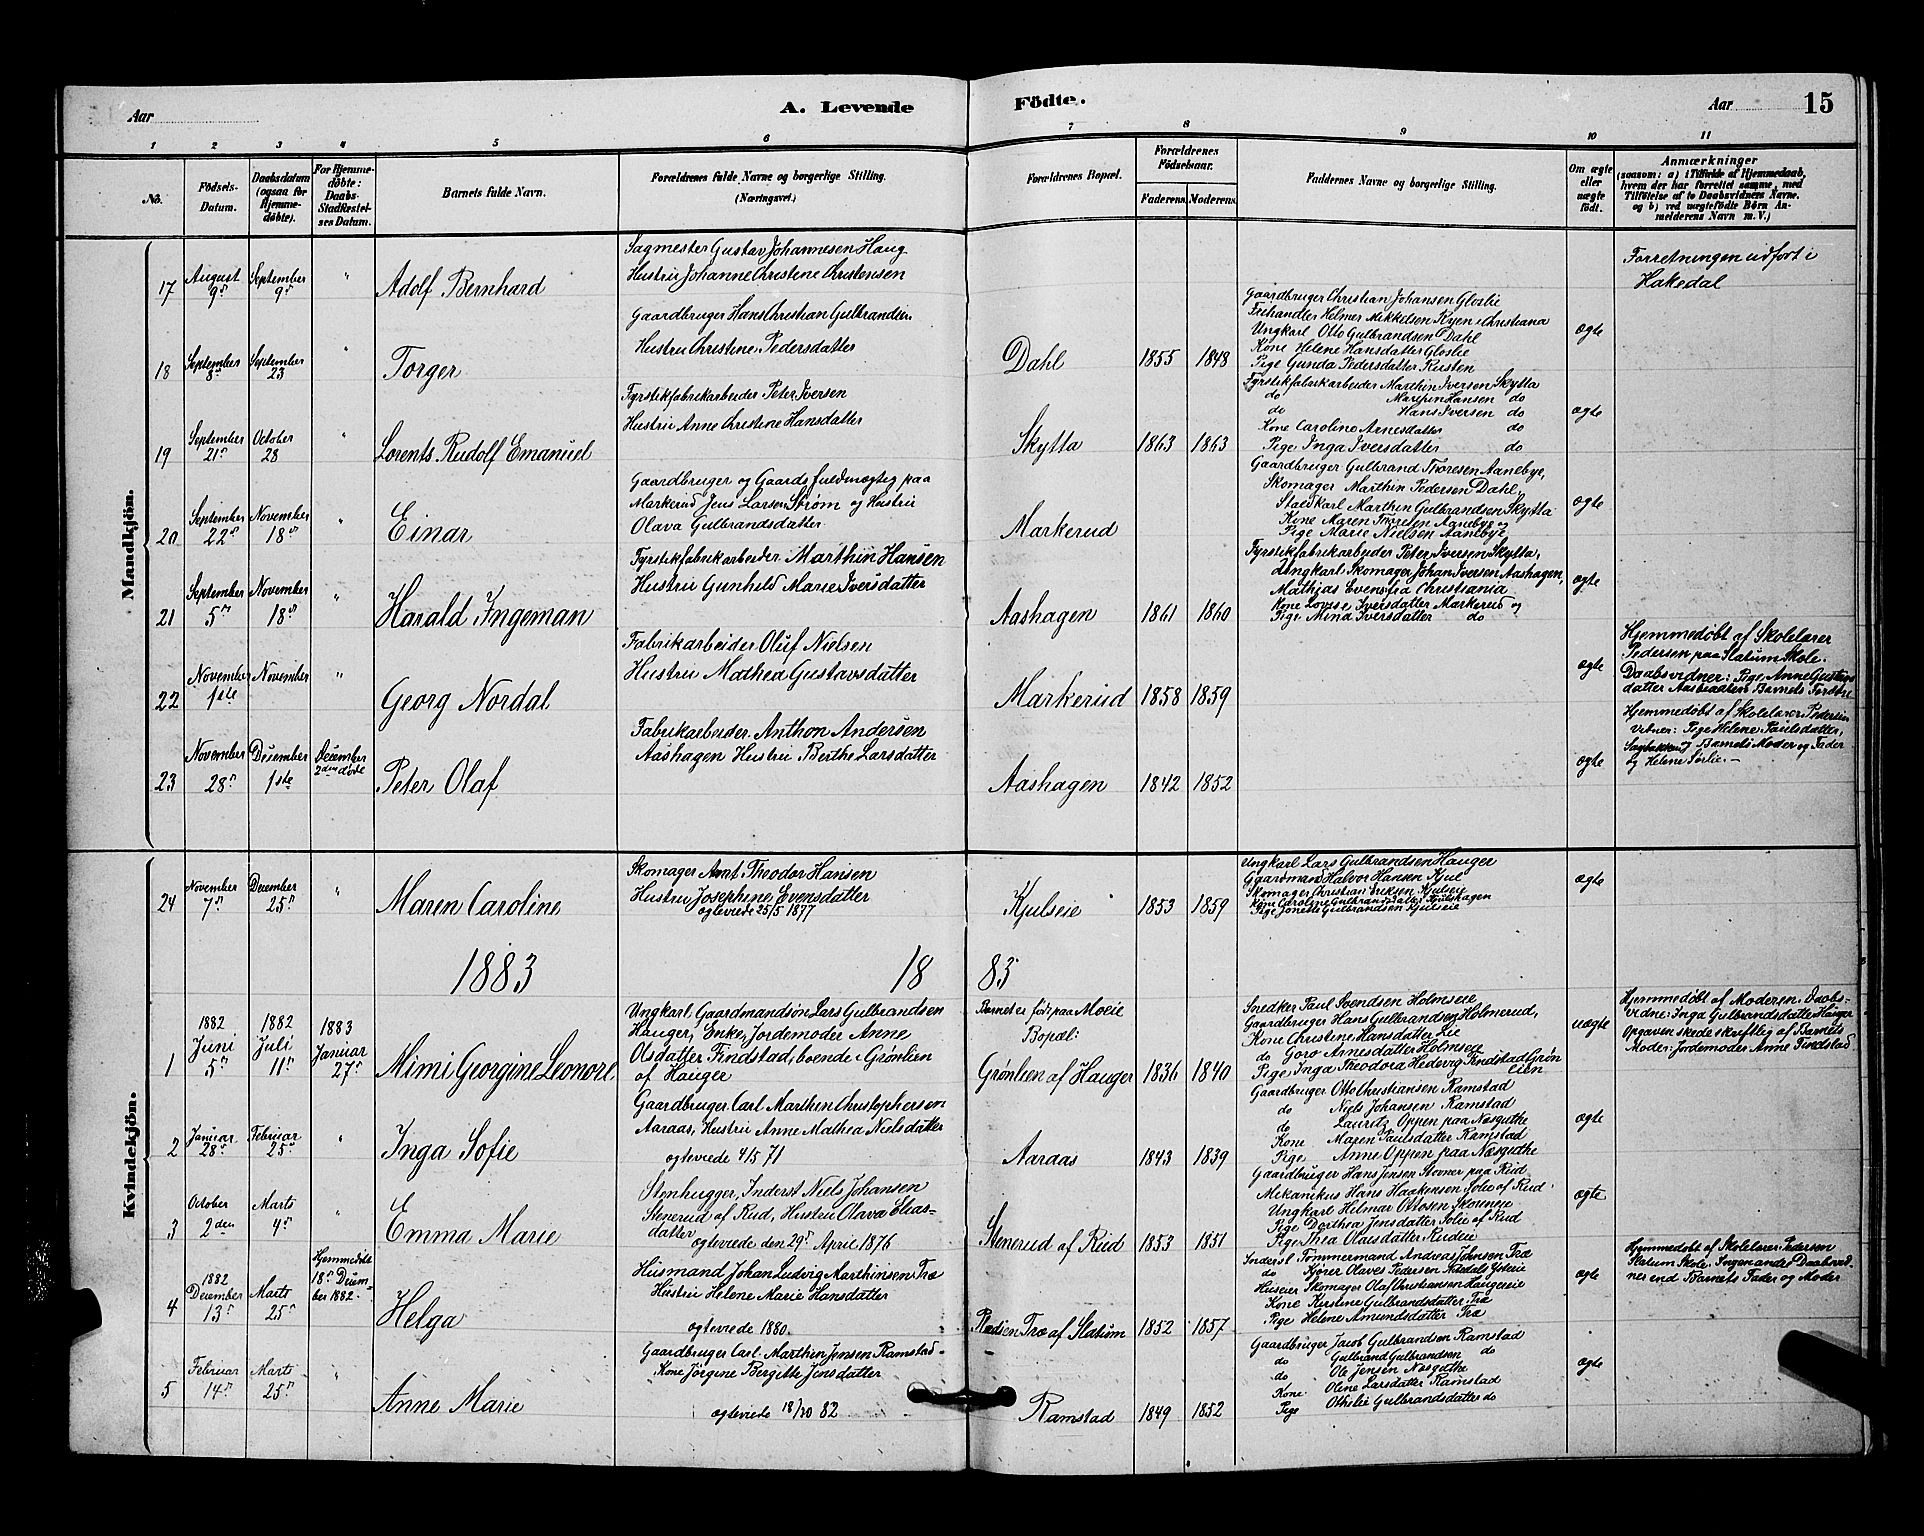 Aar
A. Levende
Födte.
Aar
15
1 2 3 4 5 6 7 8 9 10 11
No.
Födsels-
Datum.
Daabsdatum
(ogsaa for
Hjemme-
döbte).
For Hjemme-
döbte:
Daabs-
Stadfæstel-
ses Datum.
Barnets fulde Navn.
Forældrenes fulde Navne og borgerlige Stilling.
(Næringsvei.)
Forældrenes Bopæl.
Forældrenes
Födselsaar.
Faderens.
Moderens.
Faddernes Navne og borgerlige Stilling.
Om ægte
eller
uægte
født.
Anmærkninger
(saasom: a) i Tilfælde af Hjemmedaab,
hvem der har forrettet samme, med
Tilföielse af to Daabsvidners Navne.
og b) ved uægtefödte Börn An-
melderens Navn m. V.)
Mandkjön.
17
August
9n
September
9n
"
Adolf Bernhard
Sagmester Gustav Johannesen Haug
Hustru Johanne Christene Christensen
Forretningen udfort i
Hakedal
18
September
8n
September
23
"
Torger
Gaardbruger Hans Christian Gulbrandsen
Hustru Christine Pedersdatter
Dahl
1855
1848
Gaardbruger Christian Johansen Gloslie
Frihandler Helmer Mikkelsen Ryen Christiana
Ungkarl Otto Gulbrandsen Dahl
Kone Helene Hansdatter Gloslie
Pige Gunda Pedersdatter Rusten
ægte
19
September
21n
October
28
"
Lorents Rudolf Emanuel
Fyrstikfabrikarbeider Peter Iversen
Hustru Anne Christine Hansdatter
Skytta
1863
1863
Fyrstikfabrikarbeider Marthin Iversen Skytta
do Marthin Hansen do
do Hans Iversen do
Kone Caroline Arnesdatter do
Pige Inga Iversdatter do
ægte
20
September
22n
November
18n
"
Einar
Gaardbruger og Gaardsfuldmægtig paa
Markerud Jens Larsen Strøm og Hustru
Olava Gulbrandsdatter
Markerud
Gaardbruger Gulbrand Thoresen Aanebye,
Skomager Marthin Pedersen Dahl,
Staldkarl Marthin Gulbrandsen Skytta
Kone Maren Thoresen Aanebye og
Pige Marie Nielsen Aanebye
ægte
21
September
5n
November
18n
"
Harald Ingeman
Fyrstikfabrikarbeider Marthin Hansen
Hustru Gunhild Marie Iversdatter
Aashagen
1861
1860
Fyrstikfabrikarbeider Peter Iversen Skytta,
Ungkarl Skomager Johan Iversen Aashagen,
Mathias Evensen fra Christiania
Kone Lovise Iversdatter Markerud og
Pige Mina Iversdatter do
ægte
22
November
1ste
November
"
Georg Nordal
Fabrikarbeider Oluf Nielsen
Hustru Mathea Gustavsdatter
Markerud
1858
1859
ægte
Hjemmedøbt af Skolelærer
Pedersen paa Slatum Skole.
Daabsvidner: Pige Anne Gustavs
datter Aasbraaten Barnets Forældre
23
November
28n
December
1ste
December
2den døbt
Peter Olaf
Fabrikarbeider Anthon Andersen
Aashagen Hustru Berthe Larsdatter
Aashagen
1842
1852
ægte
Hjemmedøbt af Skolelærer Pedersen
Vidner: Pige Helene Paulsdatter,
Sagbakken og Barnets Moder og Fader
og Helene Sørlie.-
Kvindekjön.
24
November
7n
December
25n
"
Maren Caroline
Skomager Arnt Theodor Hansen
Hustru Josephine Evensdatter
ægteviede 25/5 1877
Kjulseie
1853
1859
Ungkarl Lars Gulbrandsen Hauger
Gaardmand Halvor Hansen Kjul
Skomager Christian Eriksen Kjulseie
Kone Caroline Gulbrandsdatter Kjulshagen
Pige Jonette Gulbrandsen Kjulseie
ægte
1883
18 83
1
1882
Juni
5n
1882
Juli
11n
1883
Januar
27n
Mimi Georgine Leonore
Ungkarl, Gaardmandsøn Lars Gulbrandsen
Hauger, Enke, Jordemoder Anne
Olsdatter Findstad, boende i Grønlien
af Hauger
Barnet er født paa Moeie
Bopæl:
Grønlien af Hauger
1836
1840
Snedker Paul Svendsen Holmseie
Gaardbruger Hans Gulbrandsen Holmerud,
Kone Christine Hansdatter Lie
do Goro Arnesdatter Holmseie
Pige Inga Theodora Hedevig Findstad Grøn
lien
uægte
Hjemmedøbt af Moderen. Daabs-
vidne: Inga Gulbrandsdatter Hauger
Opgaven skede skriftlig af Barnets
Moder: Jordemoder Anne Findstad
2
Januar
28n
Februar
25n
"
Inga Sofie
Gaardbruger Carl Marthin Christophersen
Aaraas, Hustru Anne Mathea Nielsdatter
ægteviede 4/5 71
Aaraas
1843
1839
Gaardbruger Otto Christiansen Ramstad
do Niels Johansen Ramstad
do Lauritz Oppen paa Næsguthe
Kone Maren Paulsdatter Ramstad
Pige Anne Oppen paa Næsguthe
ægte
3
October
2den
Marts
4n
"
Emma Marie
Stenhugger, Inderst Niels Johansen
Stenerud af Rud, Hustru Olava Elias-
datter
ægteviede den 29n April 1876
Stenerud af Rud
1853
1851
Gaardbruger Hans Jensen Stovner paa Rud
Mekanikus Hans Haakensen Solie af Rud
Ungkarl Hilmar Ottosen Skouneie
Pige Dorthea Jensdatter Solie af Rud
Pige Thea Olausdatter Rudeie
ægte
4
1882
December
13n
Marts
25n
Hjemmedøbt
18n Decem-
ber 1882.
Helga
Husmand Johan Ludvig Marthinsen Træ
Hustru Helene Marie Hansdatter
ægteviede 1880.
Rædien Træ af Slatum
1852
1857
Inderst Tømmermand Andreas Johnsen Træ
do Kjører Olaves Pedersen Nitedals Ysteie
Huseier Skomager Olaf Christiansen Haugerseie
Kone Kirstine Gulbrandsdatter Træ
Pige Helene Amundsdatter Træ
ægte
Hjemmedøbt af Skolelærer Pedersen
Slatum Skole. Ingen andet Daabsvid-
ner end Barnets Fader og Moder
5
Februar
14n
Marts
25n
"
Anne Marie
Gaardbruger Carl Marthin Jensen Ramstad-
Kone Jörgine Bergitte Jensdatter
ægteviede 18/10 82
Ramstad
1849
1852
Gaardbruger Jacob Gulbrandsen Ramstad
do Gulbrand Gulbrandsen do
do Ole Jensen Næsgathe
Kone Olene Larsdatter Ramstad
Pige Othilie Gulbrandsdatter do
ægte